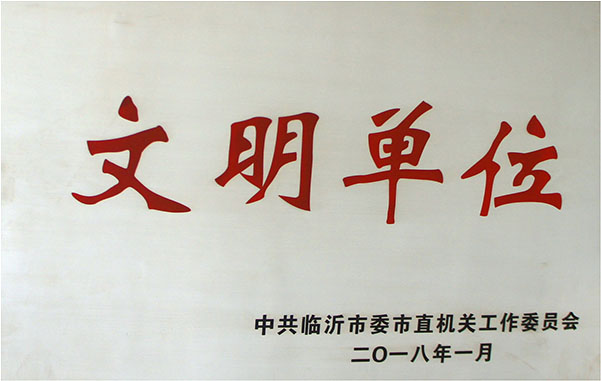 文明单位
中共临沂市委市直机关工作委员会
二〇一八年一月